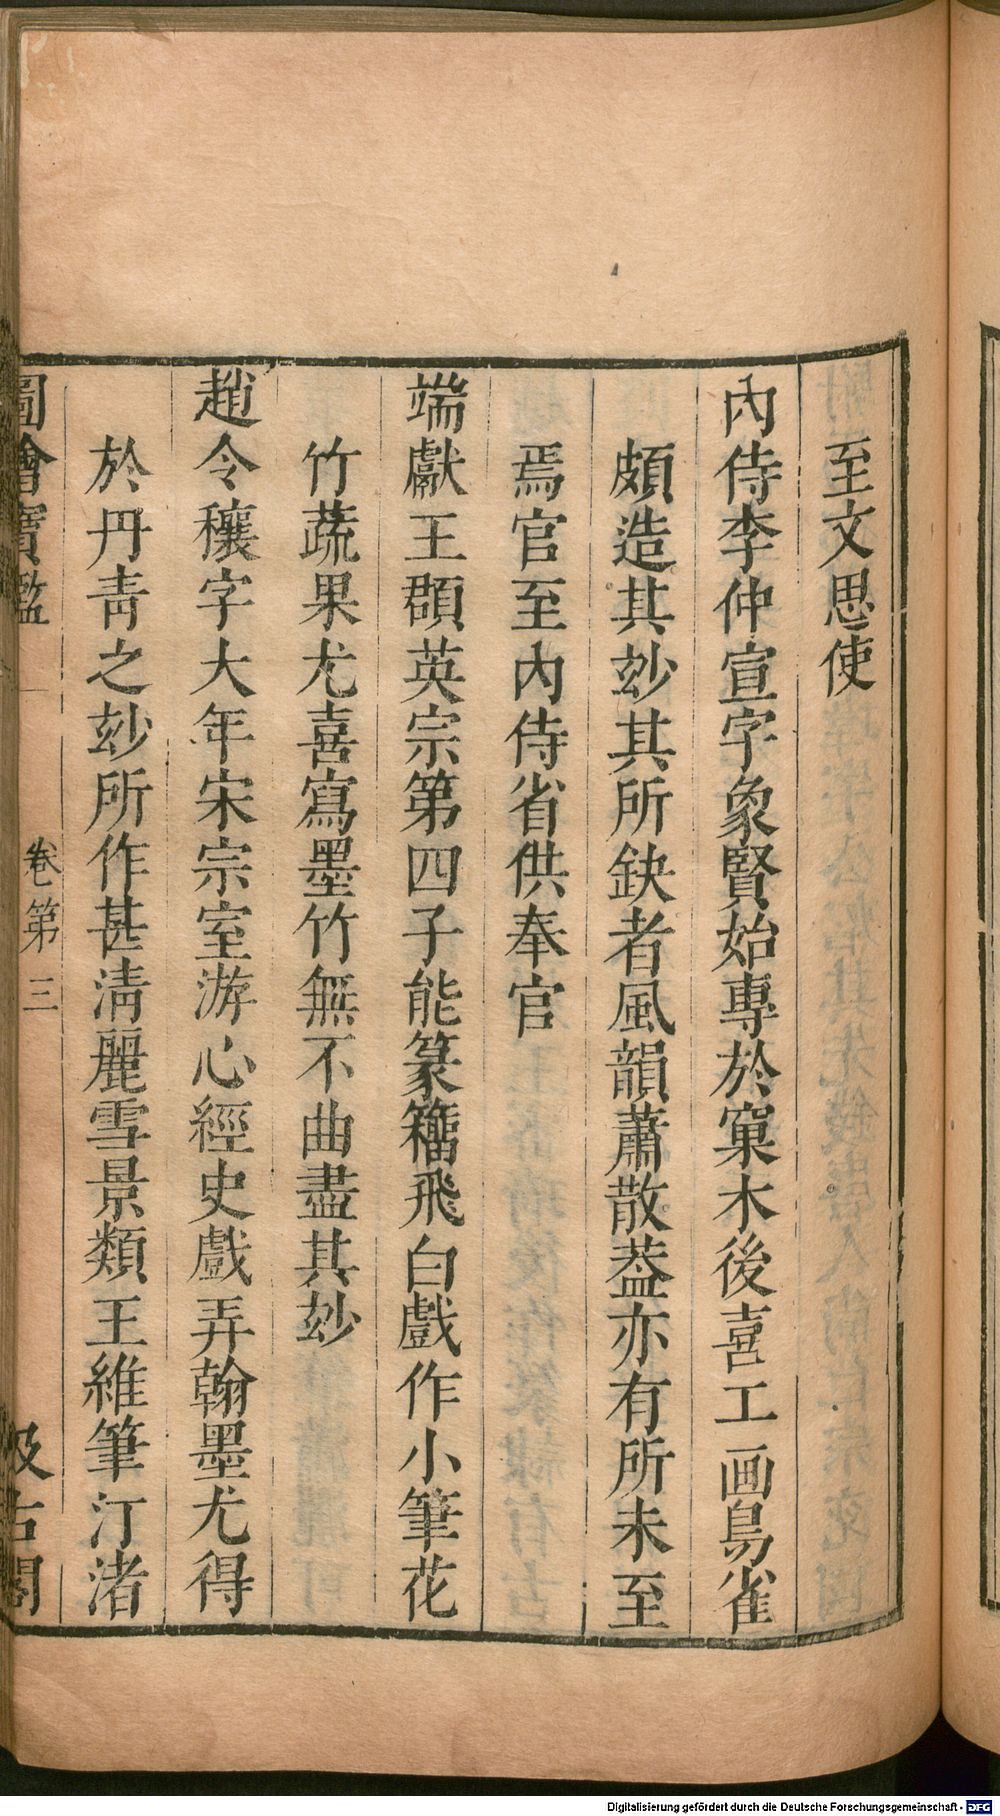 至文思使
內侍李仲宣字象賢始專於窠木後喜工画鳥雀
頗造其玅其所缺者風韻蕭散葢亦有所未至
焉官至內侍省供奉官
端獻王頵英宗第四子能篆籒飛白戲作小筆花
竹蔬果尤喜寫墨竹無不曲盡其玅
趙令穰字大年宋宗室游心經史戲弄翰墨尤得
於丹青之玅所作甚淸麗雪景類王維筆汀渚
圖繪寶鑑
卷第三
汲古閣
Digitalisierung gefördert durch die Deutsche Forschungsgemeinschaft - DFG